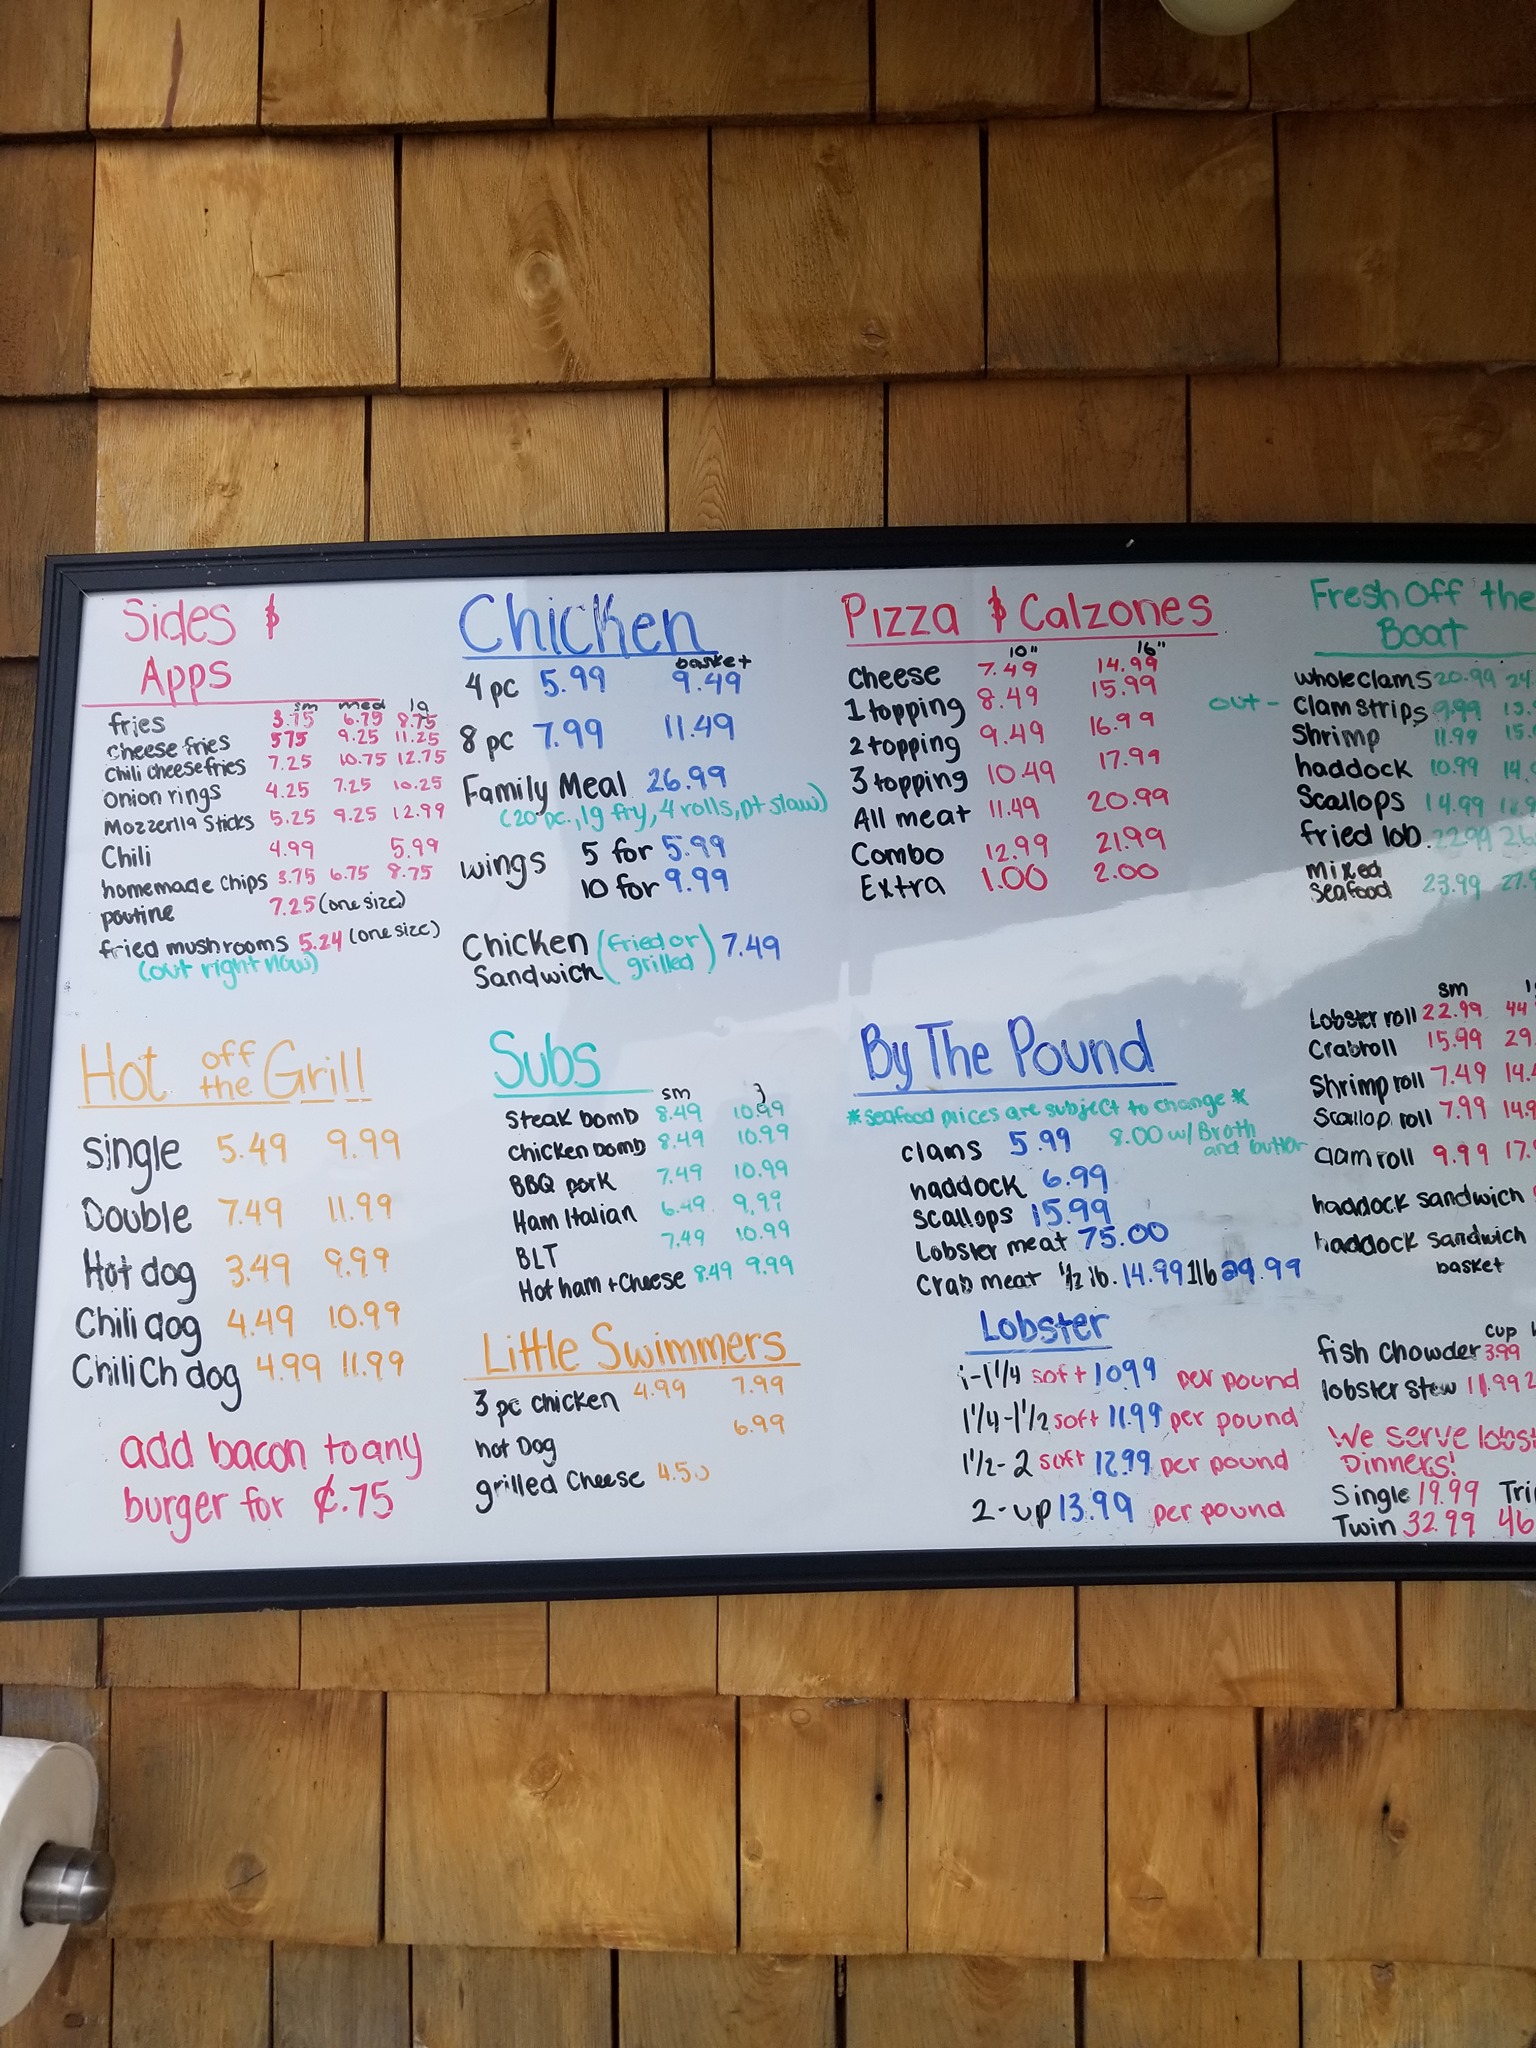 Sides &
Apps
sm med lg
fries 3.75 6.75 8.75
cheese fries 575 9.25 11.25
Chili cheese fries 7.25 10.75 12.75
onion rings 4.25 7.25 10.25
Mozzerlla Sticks 5.25 9.25 12.99
Chili 4.99 5.99
homemade chips 3.75 6.75 8.75
poutine 7.25 (one size)
fried mushrooms 5.24 (one size)
(out right now)
Chicken
basket
4 pc 5.99 9.49
8 pc 7.99 11.49
Family Meal 26.99
(20 pc., lg fry, 4 rolls, pt slaw)
wings 5 for 5.99
10 for 9.99
Chicken (fried or 7.49
Sandwich grilled)
Pizza & Calzones
10" 16"
cheese 7.49 14.99
1 topping 8.49 15.99
2 topping 9.49 16.99
3 topping 10.49 17.99
All meat 11.49 20.99
Combo 12.99 21.99
Extra 1.00 2.00
Fresh Off the
Boat
whole clams 20.99 24.
out - Clam strips 9.99
Shrimp 11.99 15.
haddock 10.99 14.
Scallops 14.99
fried lob. 22.99
mixed
seafood 23.99 27.9
Hot off the Grill
single 5.49 9.99
Double 7.49 11.99
Hot dog 3.49 9.99
Chili dog 4.49 10.99
Chili Ch dog 4.99 11.99
add bacon to any
burger for ¢.75
Subs
sm
Steak bomb 8.49 10.99
chicken bomb 8.49 10.99
BBQ pork 7.49 10.99
Ham Italian 6.49 9.99
BLT 7.49 10.99
Hot ham + Cheese 8.49 9.99
Little Swimmers
3 pc chicken 4.99 7.99
hot Dog 6.99
grilled Cheese 4.50
By The Pound
*seafood prices are subject to change*
clams 5.99 8.00 w/ Broth
and butter
haddock 6.99
scallops 15.99
Lobster meat 75.00
Crab meat 1/2 lb. 14.99 1lb 29.99
Lobster
1-1 1/4 soft 10.99 per pound
1 1/4-1 1/2 soft 11.99 per pound
1 1/2-2 soft 12.99 per pound
2-up 13.99 per pound
sm
Lobster roll 22.99 44
Crab roll 15.99 29.
Shrimp roll 7.49 14.
Scallop roll 7.99 14.9
clam roll 9.99 17.
haddock sandwich
haddock sandwich
basket
cup
fish Chowder 3.99
lobster stew 11.99 2
We serve lobst
Dinners!
Single 19.99 Tri
Twin 32.99 46